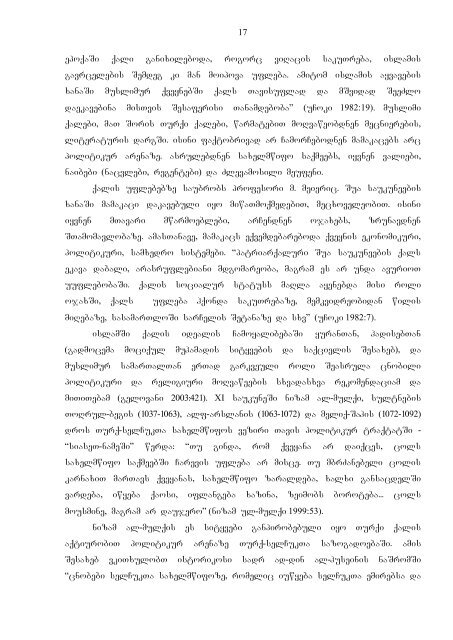 17
ეპოქაში ქალი განიხილებოდა, როგორც ვიღაცის საკუთრება, ისლამის
გავრცელების შემდეგ კი მან მოიპოვა უფლება. ამიტომ ისლამის აყვავების
ხანაში მუსლიმურ ქვეყნებში ქალს თავისუფლად და მშვიდად შეეძლო
დაეკავებინა მისთვის შესაფერისი თანამდებობა” (უჩოკი 1982:19). მუსლიმი
ქალები, მათ შორის თურქი ქალები, წარმატებით მოღვაწეობდნენ მეცნიერების,
ლიტერატურის დარგში. ისინი ფაქტობრივად არ ჩამორჩებოდნენ მამაკაცებს არც
პოლიტიკურ არენაზე. ასრულებდნენ სახელმწიფო საქმეებს, იყვნენ ვალიები,
ნაიბები (ნაცვლები, რეგენტები) და ძლევამოსილი მეუფენი.
ქალის უფლებებზე საუბრობს პროფესორი მ. მეიერიც. შუა საუკუნეების
ხანაში მამაკაცი დაკავებული იყო მიწათმოქმედებით, მეცხოველეობით. ისინი
იყვნენ მთავარი მწარმოებლები, არჩენდნენ ოჯახებს, ზრუნავდნენ
შთამომავლობაზე. ამასთანავე, მამაკაცს ექვემდებარებოდა ქვეყნის ეკონომიკური,
პოლიტიკური, სამხედრო სისტემები. “პატრიარქალური შუა საუკუნეების ქალს
ეკავა დაბალი, არასრუფლებიანი მდგომარეობა, მაგრამ ეს არ უნდა ავურიოთ
უუფლებობაში. ქალის სოციალურ სტატუსს მაღლა აყენებდა მისი როლი
ოჯახში, ქალს უფლება ჰქონდა საკუთრებაზე, მემკვიდრეობიდან წილის
მიღებაზე, სასამართლოში სარჩელის შეტანაზე და სხვ” (უჩოკი 1982:7).
ისლამში ქალის იდეალის ჩამოყალიბებაში ყურანთან, ჰადისებთან
(გადმოცემა მოციქულ მუჰამადის სიტყვების და საქციელის შესახებ), და
მუსლიმურ სამართალთან ერთად გარკვეული როლი შეასრულა ცნობილი
პოლიტიკური და რელიგიური მოღვაწეების სხვადასხვა რეკომენდაციამ და
მითითებამ (გელოვანი 2003:421). XI საუკუნეში ნიზამ ალ-მულქი, სულტნების
თოღრულ-ბეგის (1037-1063), ალფ-არსლანის (1063-1072) და მელიქ-შაჰის (1072-1092)
დროს თურქ-სელჩუკთა სახელმწიფოს ვეზირი თავის პოლიტიკურ ტრაქტატში -
“სიასეთ-ნამეში” წერდა: “თუ გინდა, რომ ქვეყანა არ დაიქცეს, ცოლს
სახელმწიფო საქმეებში ჩარევის უფლება არ მისცე. თუ მბრძანებელი ცოლის
კარნახით მართავს ქვეყანას, სახელმწიფო ზარალდება, ხალხი განსაცდელში
ვარდება, იწყება ქაოსი, იფლანგება ხაზინა, ზეიმობს ბოროტება... ცოლს
მოუსმინე, მაგრამ არ დაუჯერო” (ნიზამ ულ-მულქი 1999:53).
ნიზამ ალ-მულქის ეს სიტყვები განპირობებული იყო თურქი ქალის
აქტიურობით პოლიტიკურ არენაზე თურქ-სელჩუკთა საზოგადოებაში. ამის
შესახებ ვკითხულობთ ისტორიკოსი სადრ ად-დინ ალ-ჰუსეინის ნაშრომში
“ცნობები სელჩუკთა სახელმწიფოზე, რომელიც იუწყება სელჩუკთა ემირებსა და